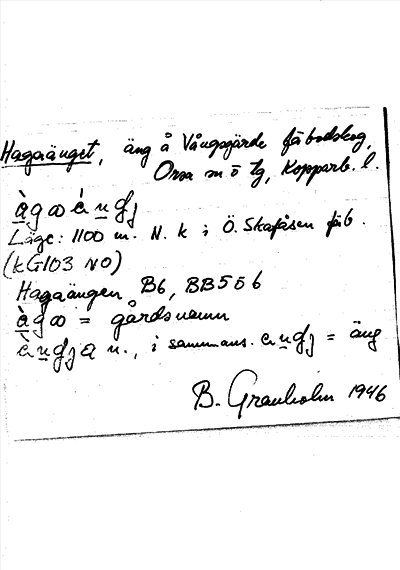 Hagaänget, äng å Vångsgärde fäbodskog,
Orsa sn o tg, Kopparb. l.
Läge: 1100 m. N. k i Ö. Skafåsen fäb.
(KG103 NO)
Hagaängen B6, BB556
= gårdsnamn
n., i sammans. = äng
B. Granholm 1946